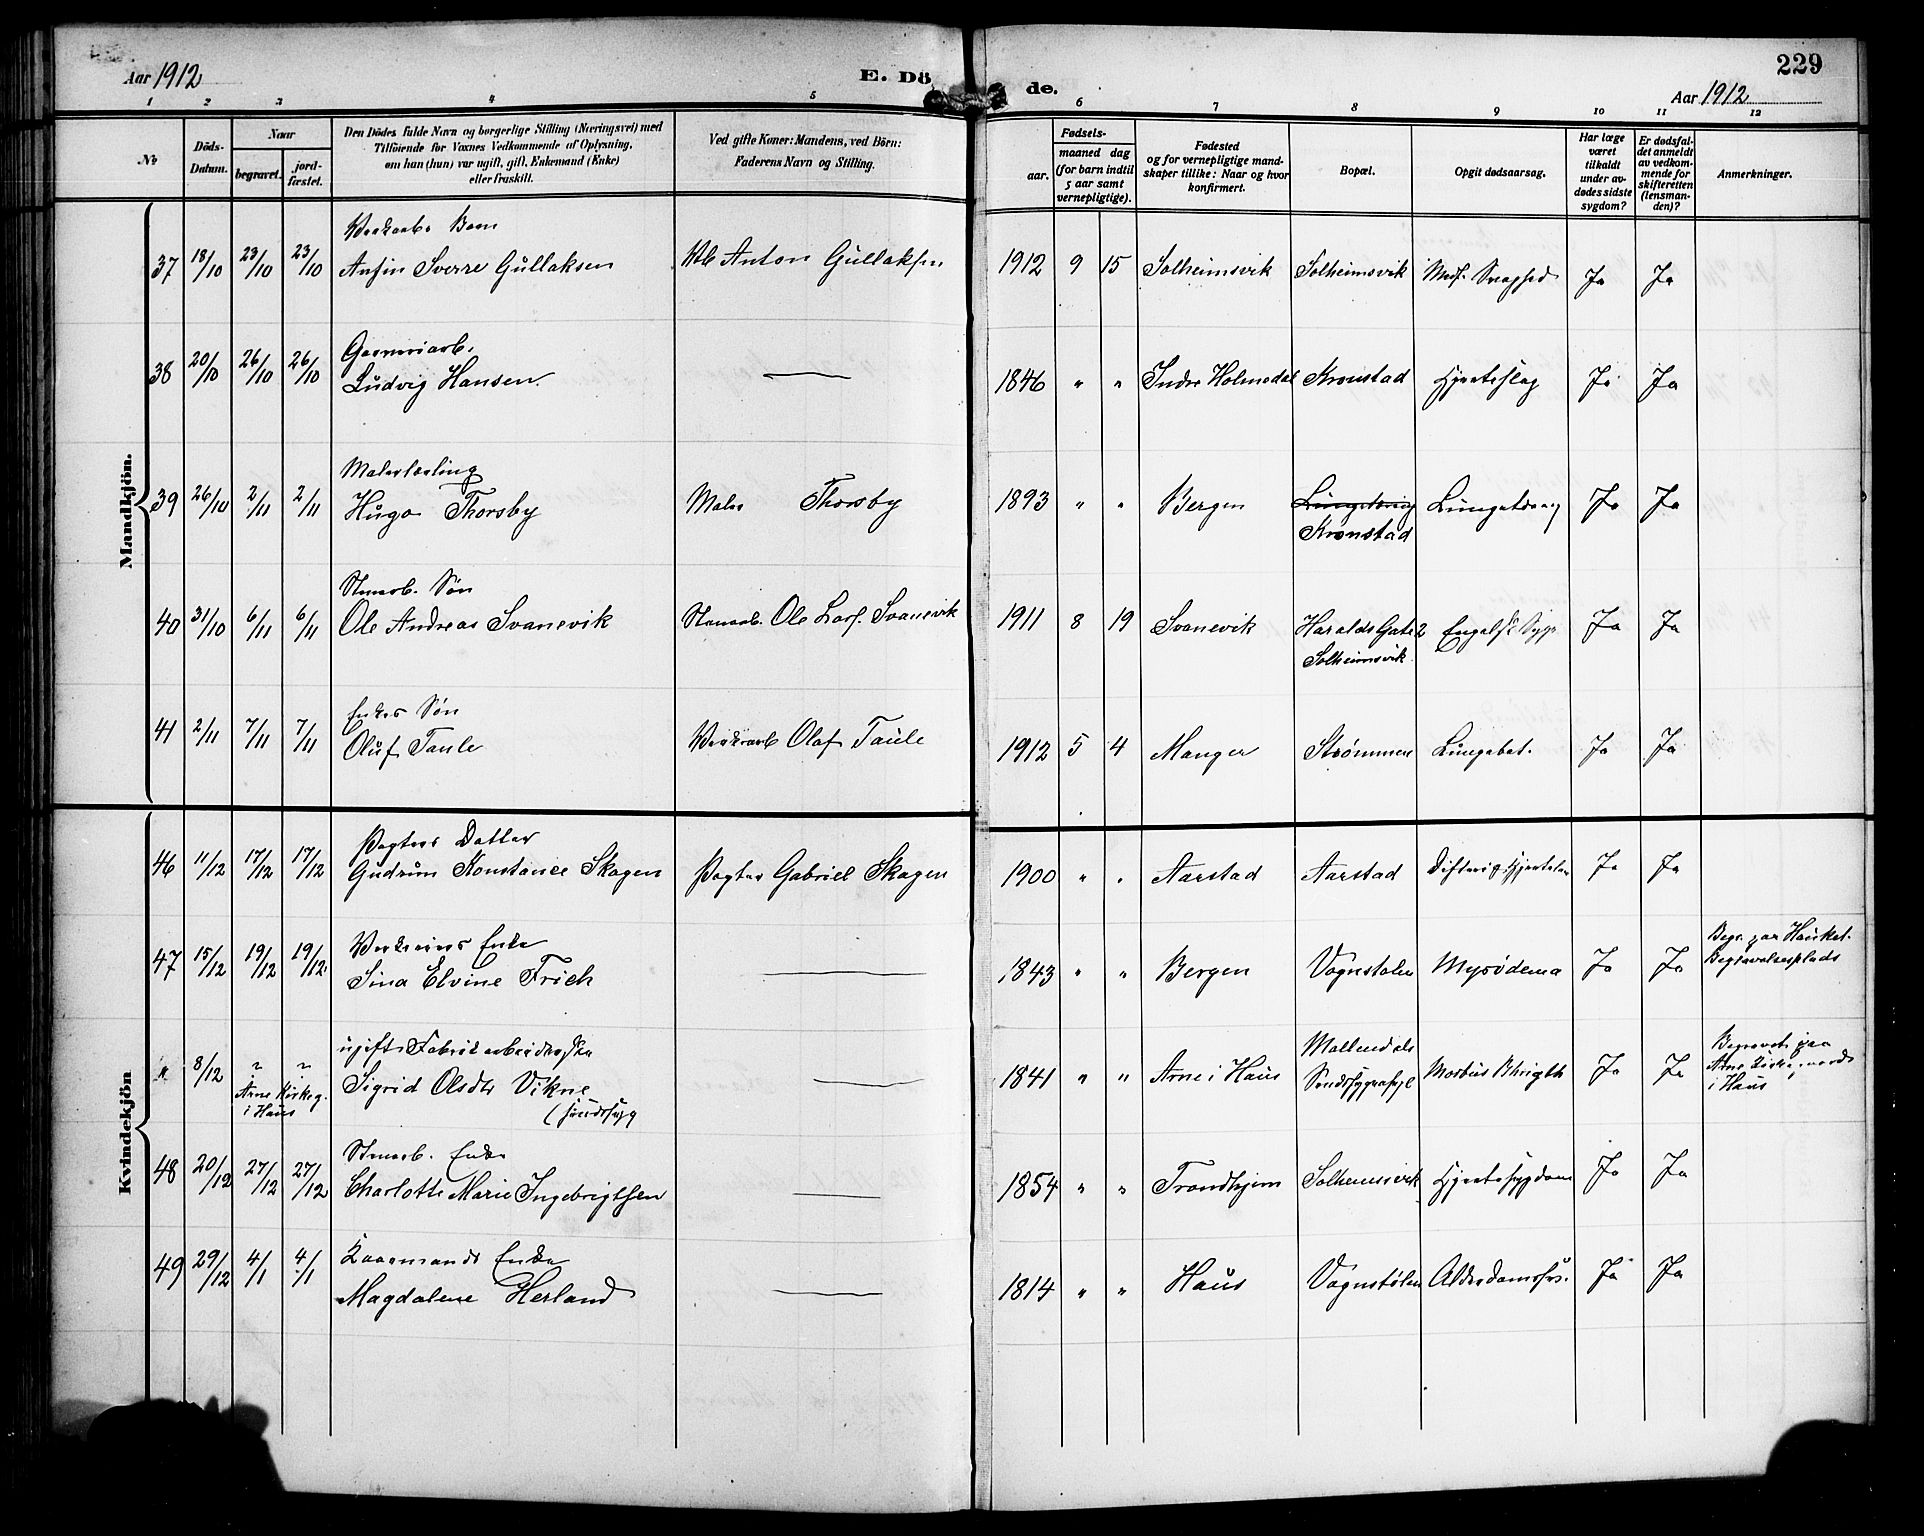 Aar 1912
E. Dö
de.
229
Aar 1912
1 2 3 4 5 6 7 8 9 10 11 12
No
Döds-
Datum.
Naar
begravet.
jord-
fæstet.
Den Dödes fulde Navn og borgerlige Stilling (Næringsvei) med
Tilföiende for Voxnes Vedkommende af Oplysning,
om han (hun) var ugift, gift, Enkemand (Enke)
eller fraskilt.
Ved gifte Koner: Mandens, ved Börn:
Faderens Navn og Stilling.
Fødsels-
aar.
maaned dag
(for barn indtil
5 aar samt
vernepligtige).
Fødested
og for vernepligtige mand-
skaper tillike: Naar og hvor
konfirmert.
Bopæl.
Opgit dødsaarsag.
Har læge
været
tilkaldt
under av-
dødes sidste
sygdom?
Er dødsfal-
det anmeldt
av vedkom-
mende for
skifteretten
(lensman-
den)?
Anmerkninger.
Mandkjön.
Barn
37 18/10 23/10 23/10 Anfin Sverre Gullaksen Anton Gullaksen 1912 9 15 Solheimsvik Solheimsvik Medf. Svaghed Ja Ja
38 20/10 26/10 26/10 Ludvig Hansen. — 1846 " " Indre Holmedal Kronstad Hjerteslag Ja Ja
Malerlærling
39 26/10 2/11 2/11 Hugo Thorsby Maler Thorsby 1893 " " Bergen Ja Ja
Kronstad
Stenarb. Søn
40 31/10 6/11 6/11 Ole Andreas Svanevik Stenarb. Ole Lars. Svanevik 1911 8 19 Svanevik Haralds Gate 2 Engelsk Syge Ja Ja
Solheimsvik
Enkes Søn
41 2/11 7/11 7/11 Oluf Taule Olaf Taule 1912 5 4 Manger Strømmen Lungebet. Ja Ja
Kvindekjön
Pagters Datter
46 11/12 17/12 17/12 Gudrun Konstance Skagen Pagter Gabriel Skagen 1900 " " Aarstad Aarstad Ja Ja
Enke
47 15/12 19/12 19/12 Sina Elvine Frich — 1843 " " Bergen Vognstølen Myxödema Ja Ja
Begr. paa Hauket.
Begravelsesplads
ugift Fabrikarbeiderske
" 8/12 ? ? Sigrid Olsdtr Vikne — 1841 " " Arne i Haus Ja Ja
Arne Kirkeg.
i Haus
(sindssyg
Møllendals
Sindssygeasyl
Morbus Brigth
Begravet paa
Arne Kirkegaard
i Haus
Stenarb. Enke
48 20/12 27/12 27/12 Charlotte Marie Ingebrigtsen — 1854 " " Trondhjem Solheimsvik Hjertesygdom Ja Ja
Enke
49 29/12 4/1 4/1 Magdalene Herland — 1814 " " Haus Vognstølen Ja Ja